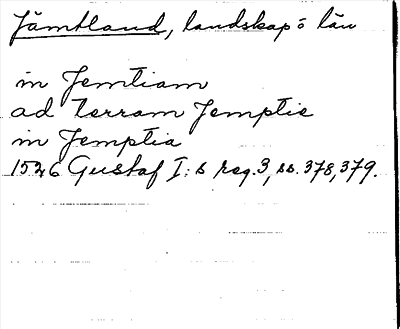 Jämtland, landskap o län
in Jemtiam
ad terram Jemptie
in Jemptia
1526 Gustaf I:s reg. 3, ss. 378, 379.